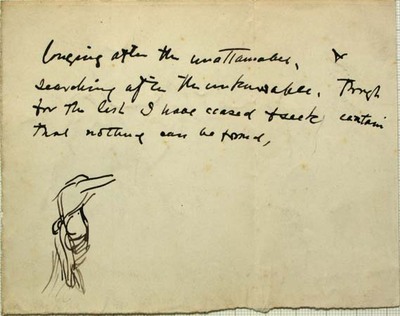 Longing after the unattainable, &
searching after the unknowable. Though
for the last I have ceased to seek certain
that nothing can be found,